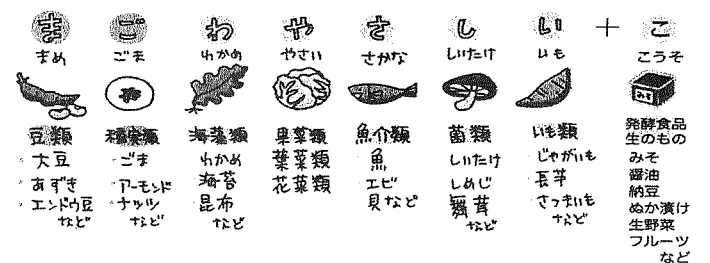 ま ご わ や さ し い + こ
まめ ごま わかめ やさい さかな しいたけ いも こうそ
みそ
豆類
大豆
あずき
エンドウ豆
など
種実類
ごま
アーモンド
ナッツ
など
海藻類
わかめ
海苔
昆布
など
果菜類
葉菜類
花菜類
魚介類
魚
エビ
貝など
菌類
しいたけ
しめじ
舞茸
など
いも類
じゃがいも
長芋
さつまいも
など
発酵食品
生のもの
みそ
醤油
納豆
ぬか漬け
生野菜
フルーツ
など